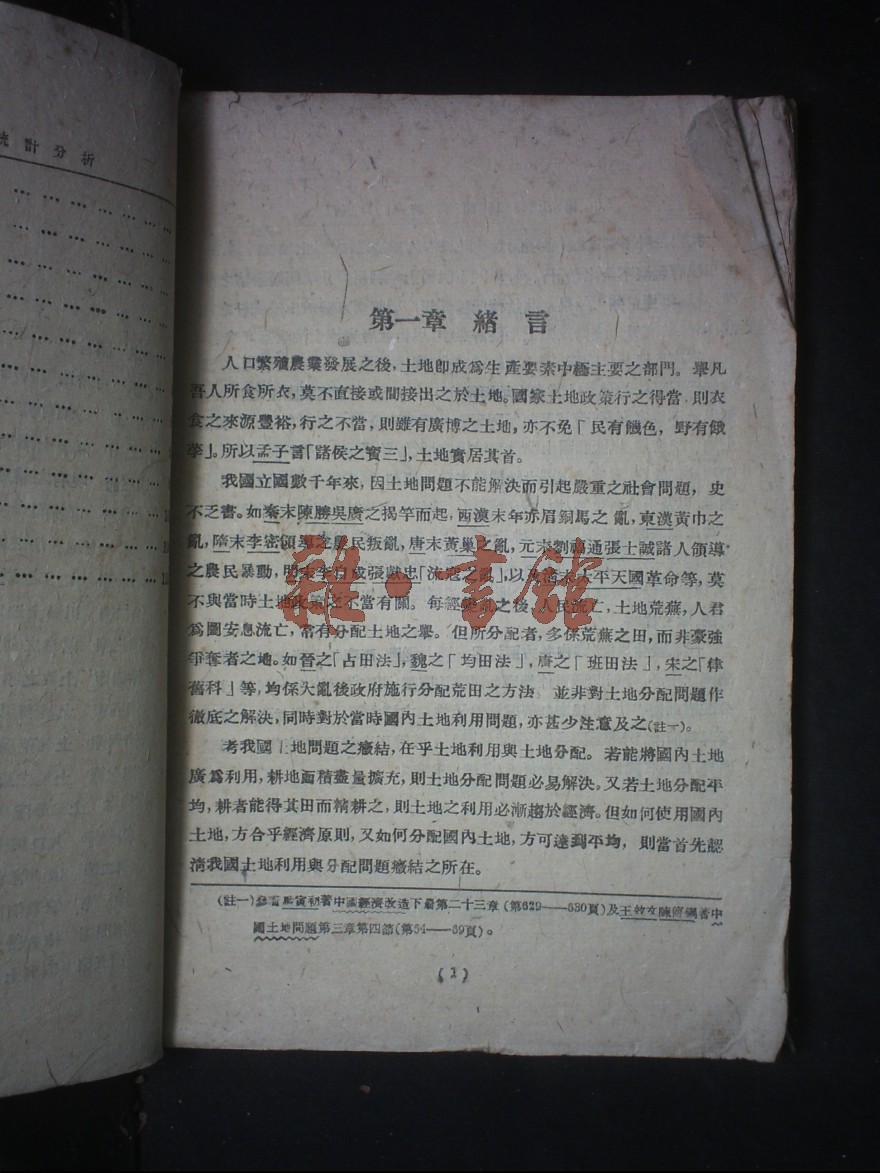 統計分析
第一章 緒言
人口繁殖農業發展之後,土地卽成爲生產要素中極主要之部門。舉凡
吾人所食所衣,莫不直接或間接出之於土地。國家土地政策行之得當,則衣
食之來源豐裕,行之不當,則雖有廣博之土地,亦不免「民有饑色,野有餓
莩」。所以孟子言「諸侯之寳三」,土地實居其首。
我國立國數千年來,因土地問題不能解決而引起嚴重之社會問題,史
不乏書。如秦末陳勝吳廣之揭竿而起,西漢末年赤眉銅馬之亂,東漢黃巾之
亂,隋末李密領導之農民叛亂,唐末黃巢之亂,元末劉福通張士誠諸人領導
之農民暴動,明末李自成張獻忠「流寇之亂」,以及淸末太平天國革命等,莫
不與當時土地政策之不當有關。每經變亂之後,人民流亡,土地荒蕪,人君
爲圖安息流亡,常有分配土地之舉。但所分配者,多係荒蕪之田,而非豪強
爭奪者之地。如晉之「占田法」,魏之「均田法」,唐之「班田法」,宋之「律
舊科」等,均係大亂後政府施行分配荒田之方法 並非對土地分配問題作
徹底之解決,同時對於當時國內土地利用問題,亦甚少注意及之(註一)。
考我國土地問題之癥結,在乎土地利用與土地分配。若能將國內土地
廣爲利用,耕地面積盡量擴充,則土地分配問題必易解決。又若土地分配平
均,耕者能得其田而精耕之,則土地之利用必漸趨於經濟。但如何使用國內
土地,方合乎經濟原則,又如何分配國內土地,方可達到平均,則當首先認
淸我國土地利用與分配問題癥結之所在。
(註一)參看馬寅初著中國經濟改造下册第二十三章(第629——630頁)及王效文陳傳鋼著中
國土地問題第三章第四節(第54——59頁)。
(1)
雜·書館